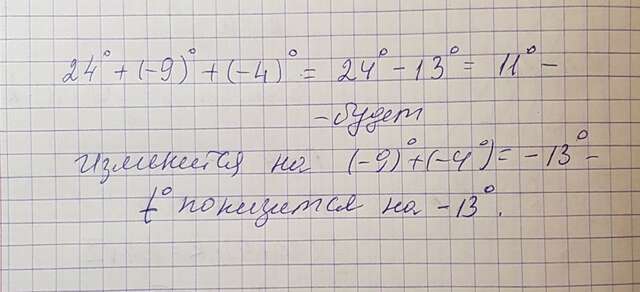 24° + (-9)° + (-4)° = 24° - 13° = 11° -
- будет
Изменится на (-9)° + (-4°) = -13° -
t° понизится на -13°.